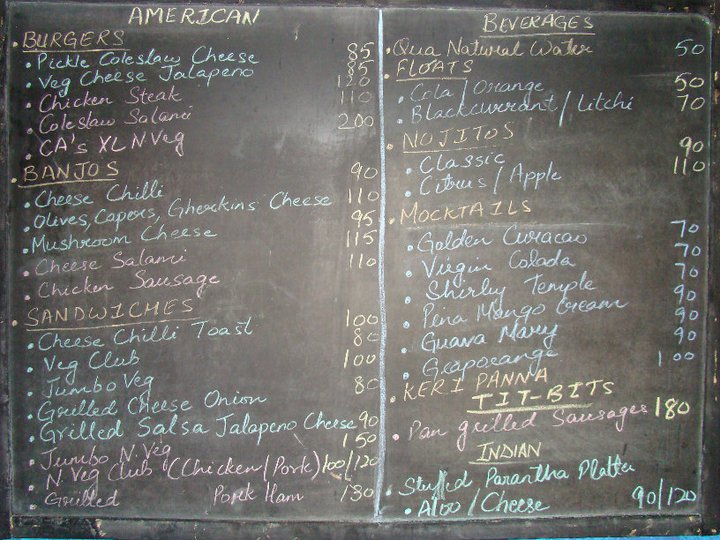 AMERICAN
BURGERS
Pickle Coleslaw Cheese 85
Veg Cheese Jalapeno 85
Chicken Steak 120
Coleslaw Salami 110
CA's XL N Veg 200
BANJOS
Cheese Chilli 90
Olives, Capers, Gherkins Cheese 110
Mushroom Cheese 95
Cheese Salami 115
Chicken Sausage 110
SANDWICHES
Cheese Chilli Toast 100
Veg Club 80
Jumbo Veg 100
Grilled Cheese Onion 80
Grilled Salsa Jalapeno Cheese 90
Jumbo N Veg 150
N Veg Club (Chicken/Pork) 100/120
Grilled Pork Ham 130
BEVERAGES
Qua Natural Water 50
FLOATS
Cola/Orange 50
Blackcurrant/Litchi 70
NOJITOS
Classic 90
Citrus/Apple 110
MOCKTAILS
Golden Curacao 70
Virgin Colada 70
Shirley Temple 70
Pena Mango Cream 90
Guava Mary 90
Graporange 90
KERI PANNA 100
TIT-BITS
Pan grilled Sausages 180
INDIAN
Stuffed Parantha Platter
Aloo/Cheese 90/120